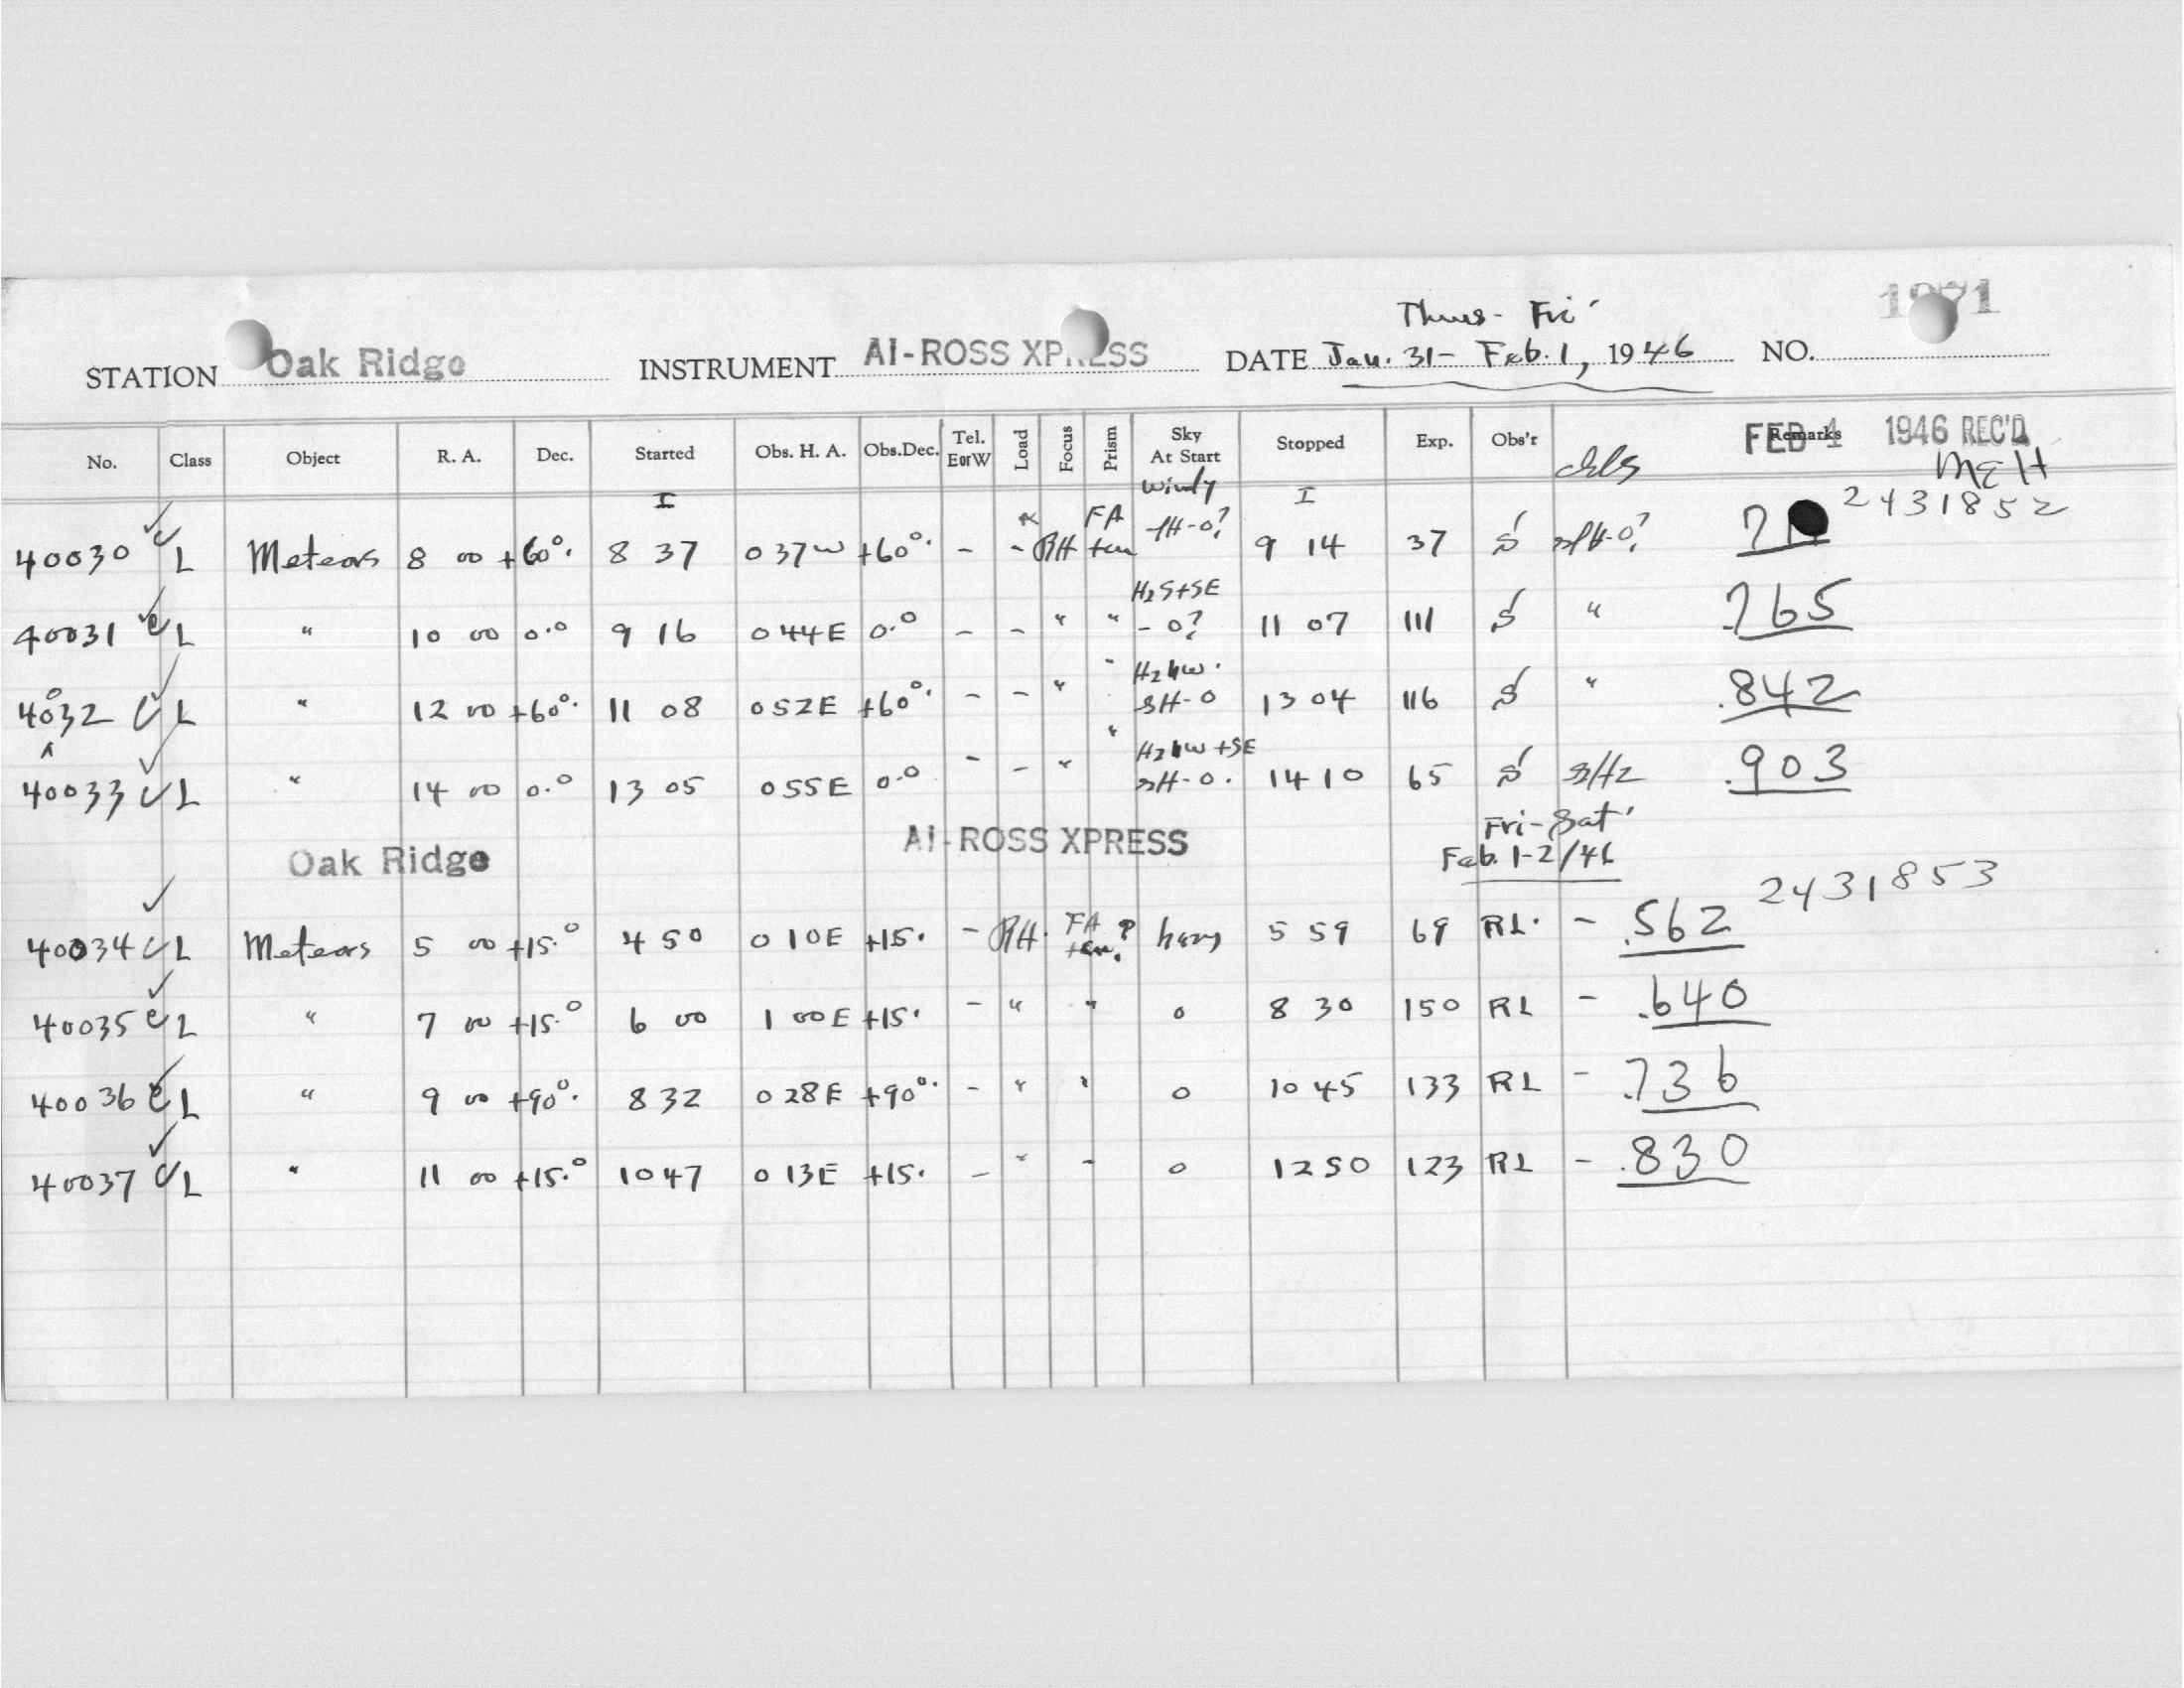 Thurs - Fri
STATION Oak Ridge INSTRUMENT AI-ROSS XPRESS DATE Jan. 31 - Feb. 1, 1946 NO. 1971
No. Class Object R. A. Dec. Started Obs. H. A. Obs.Dec. Tel. E or W Load Focus Prism Sky At Start Stopped Exp. Obs'r Remarks FEB 1 1946 REC'D
Windy MEH
I I 2431852
40030 L Meteors 8 00 +60°. 8 37 0 37W +60°. - - RH FA ten 9 14 37 S
40031 L " 10 00 0.0 9 16 0 44E 0.0 - - " " H2 S+SE - 0? 11 07 111 S " .765
4032 L " 12 00 +60°. 11 08 0 52E +60°. - - " " sH-0 13 04 116 S " .842
40033 L " 14 00 0.0 13 05 0 55E 0.0 - - " " +SE 14 10 65 S .903
Oak Ridge AI-ROSS XPRESS Fri-Sat
Feb. 1-2/46
2431853
40034 L Meteors 5 00 +15.° 4 50 0 10E +15. - RH. FA ten.? hazy 5 59 69 RL. - .562
40035 L " 7 00 +15.° 6 00 1 00E +15. - " " 0 8 30 150 RL - .640
40036 L " 9 00 +90°. 8 32 0 28E +90°. - " " 0 10 45 133 RL - .736
40037 L " 11 00 +15.° 10 47 0 13E +15. - " - 0 12 50 123 RL - .830